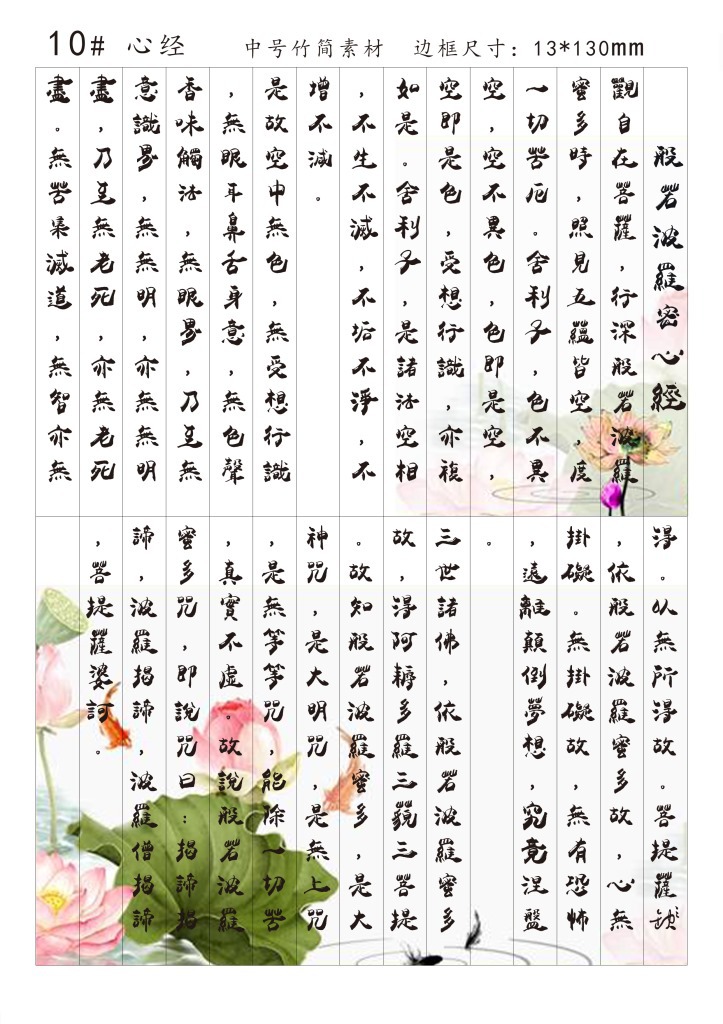 10# 心经 中号竹简素材 边框尺寸：13*130mm
般若波羅密心經
觀自在菩薩，行深般若波羅
蜜多時。照見五蘊皆空，度
一切苦厄。舍利子，色不異
空，空不異色，色即是空，
空即是色，受想行識，亦複
如是。舍利子，是諸法空相
，不生不滅，不垢不淨，不
增不減。
是故空中無色，無受想行識
，無眼耳鼻舌身意，無色聲
香味觸法，無眼界，乃至無
意識界，無無明，亦無無明
盡，乃至無老死，亦無老死
盡。無苦集滅道，無智亦無
得。以無所得故。菩提薩埵
，依般若波羅蜜多故，心無
掛礙。無掛礙故，無有恐怖
，遠離顛倒夢想，究竟涅盤
。
三世諸佛，依般若波羅蜜多
故，得阿耨多羅三藐三菩提
。故知般若波羅蜜多，是大
神咒，是大明咒，是無上咒
，是無等等咒，能除一切苦
，真實不虛。故說般若波羅
蜜多咒，即說咒曰：揭諦揭
諦，波羅揭諦，波羅僧揭諦
，菩提薩婆訶。